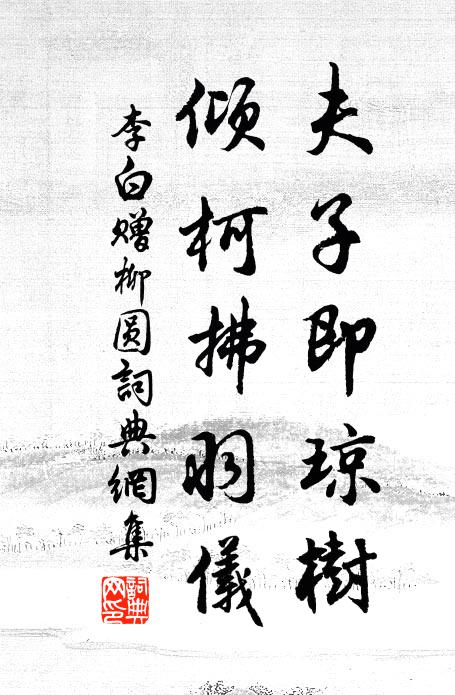 夫子即琼樹
傾柯拂羽儀
李白赠柳圆詞典網集
詞典网印